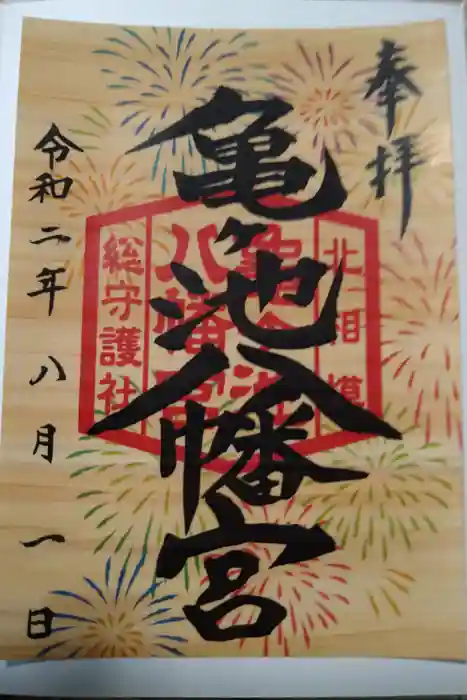 奉拝
亀ヶ池八幡宮
北相模
亀ヶ池
八幡宮
総守護社
令和二年八月一日